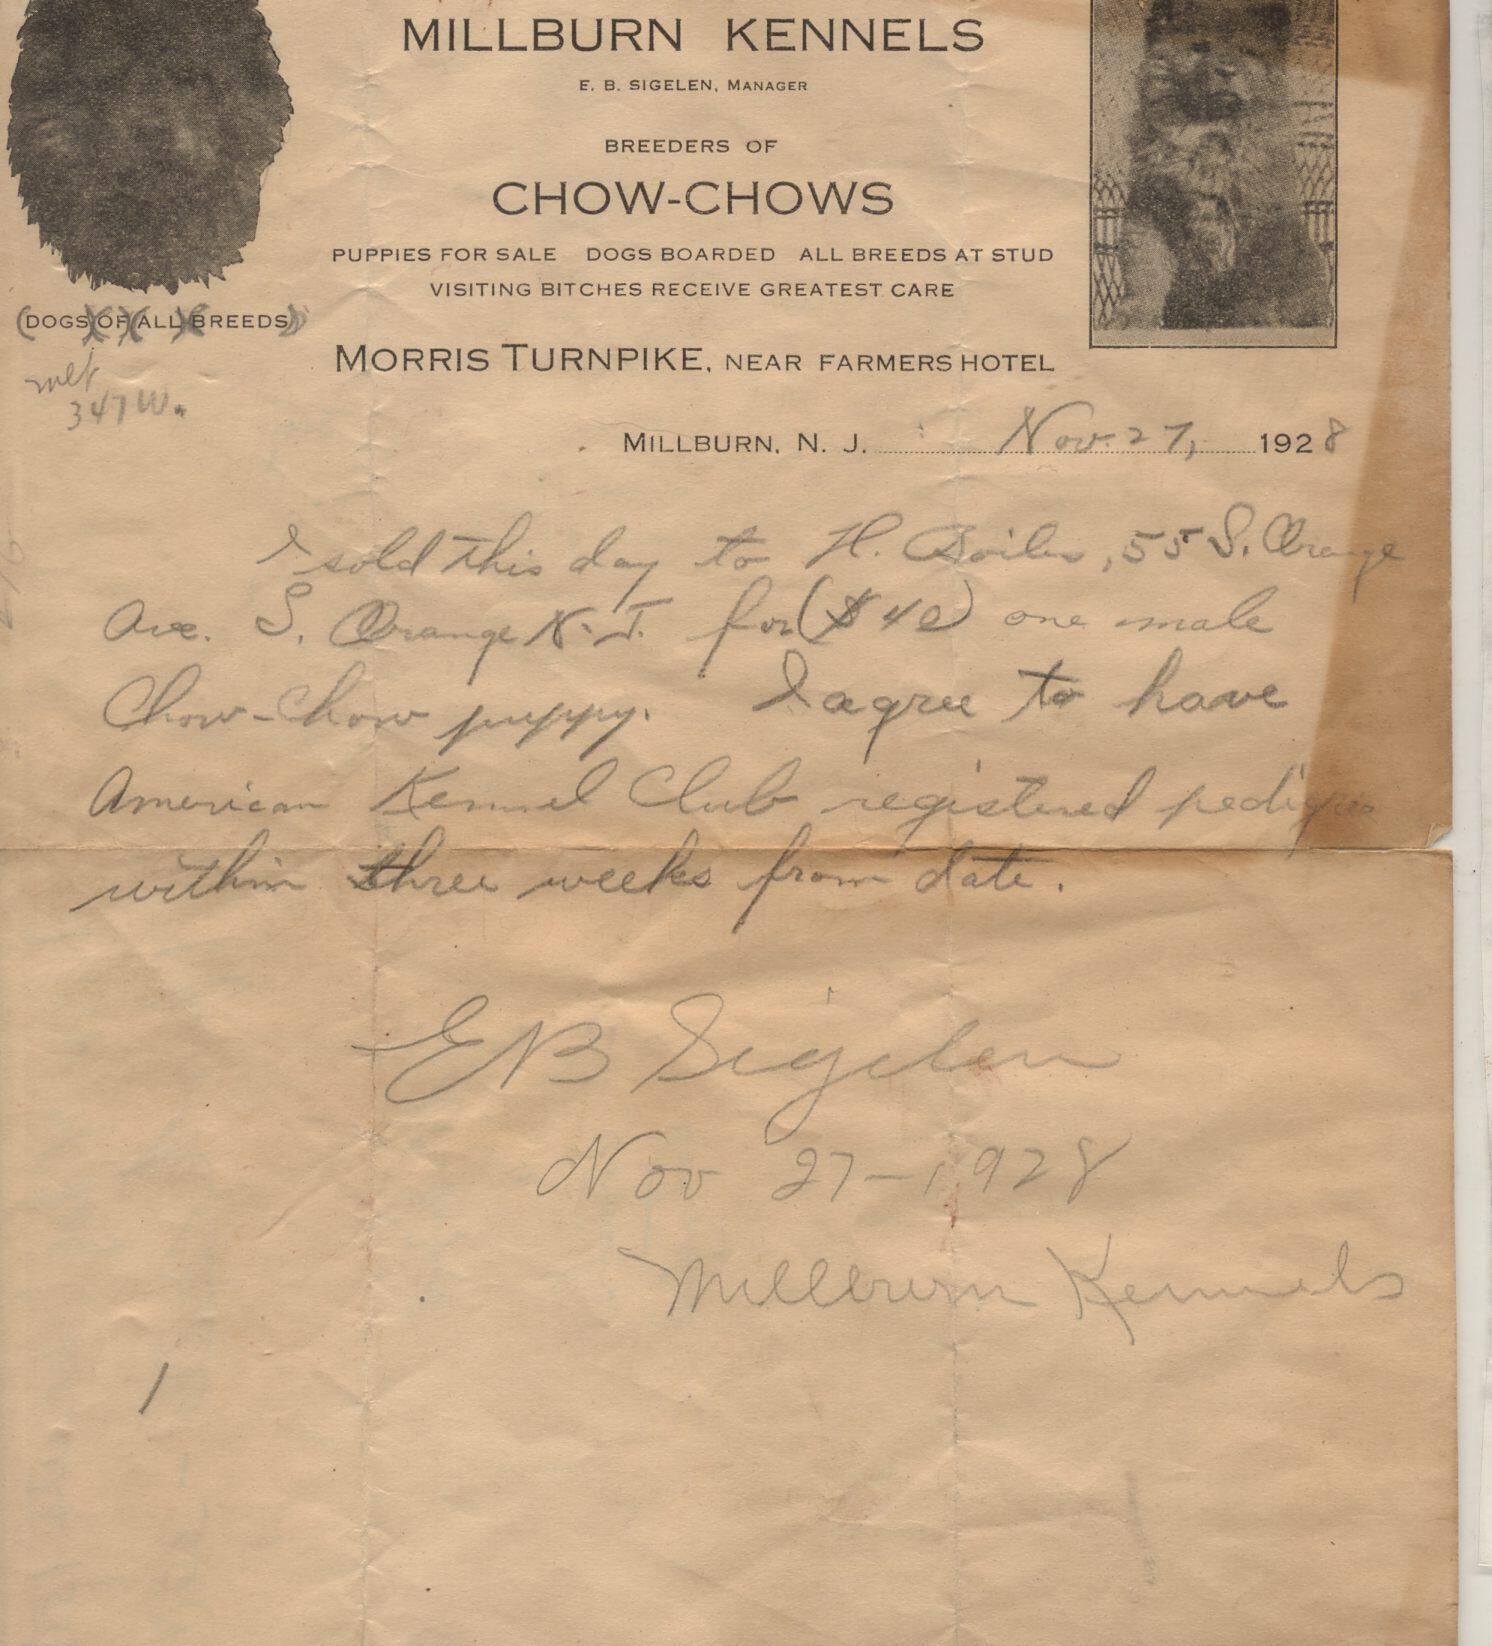 MILLBURN KENNELS
E. B. SIGELEN, MANAGER
BREEDERS OF
CHOW-CHOWS
PUPPIES FOR SALE DOGS BOARDED ALL BREEDS AT STUD
VISITING BITCHES RECEIVE GREATEST CARE
(DOGS OF ALL BREEDS)
MORRIS TURNPIKE, NEAR FARMERS HOTEL
347 W.
MILLBURN, N. J. Nov. 27, 1928
I sold this day to H. 55 S. Orange
Ave. S. Orange N. J. for ($40) one male
Chow-Chow puppy. I agree to have
American Kennel Club registered pedigree
within three weeks from date.
E B Sigelen
Nov 27-1928
Millburn Kennels